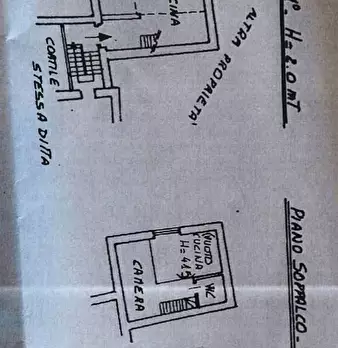 CINA
ALTRA PROPRIETA'
CORTILE
STESSA DITTA
H=2.0 MT
PIANO SOPPALCO-
VUOTO
CUCINA
H=4.15
WC
CAMERA